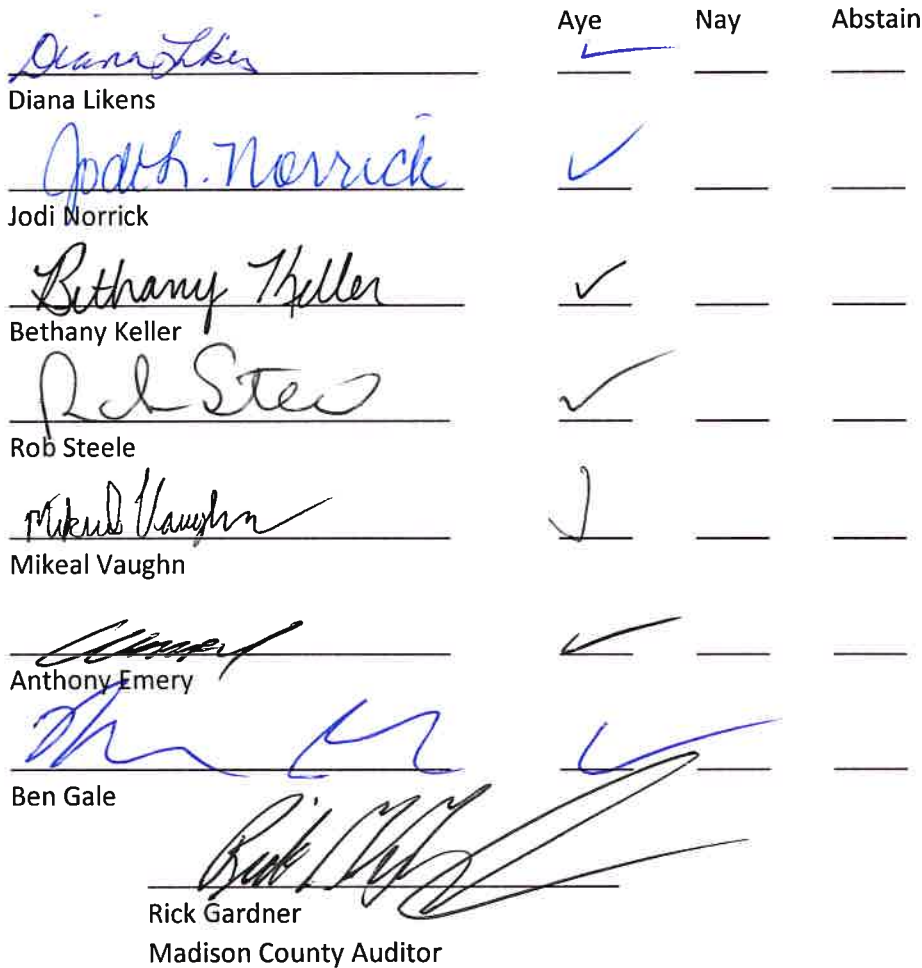 Aye Nay Abstain
Diana Likens
Diana Likens
Jodi L. Norrick
Jodi Norrick
Bethany Keller
Bethany Keller
Rob Steele
Mikeal Vaughn
Mikeal Vaughn
Anthony Emery
Ben Gale
Rick
Rick Gardner
Madison County Auditor